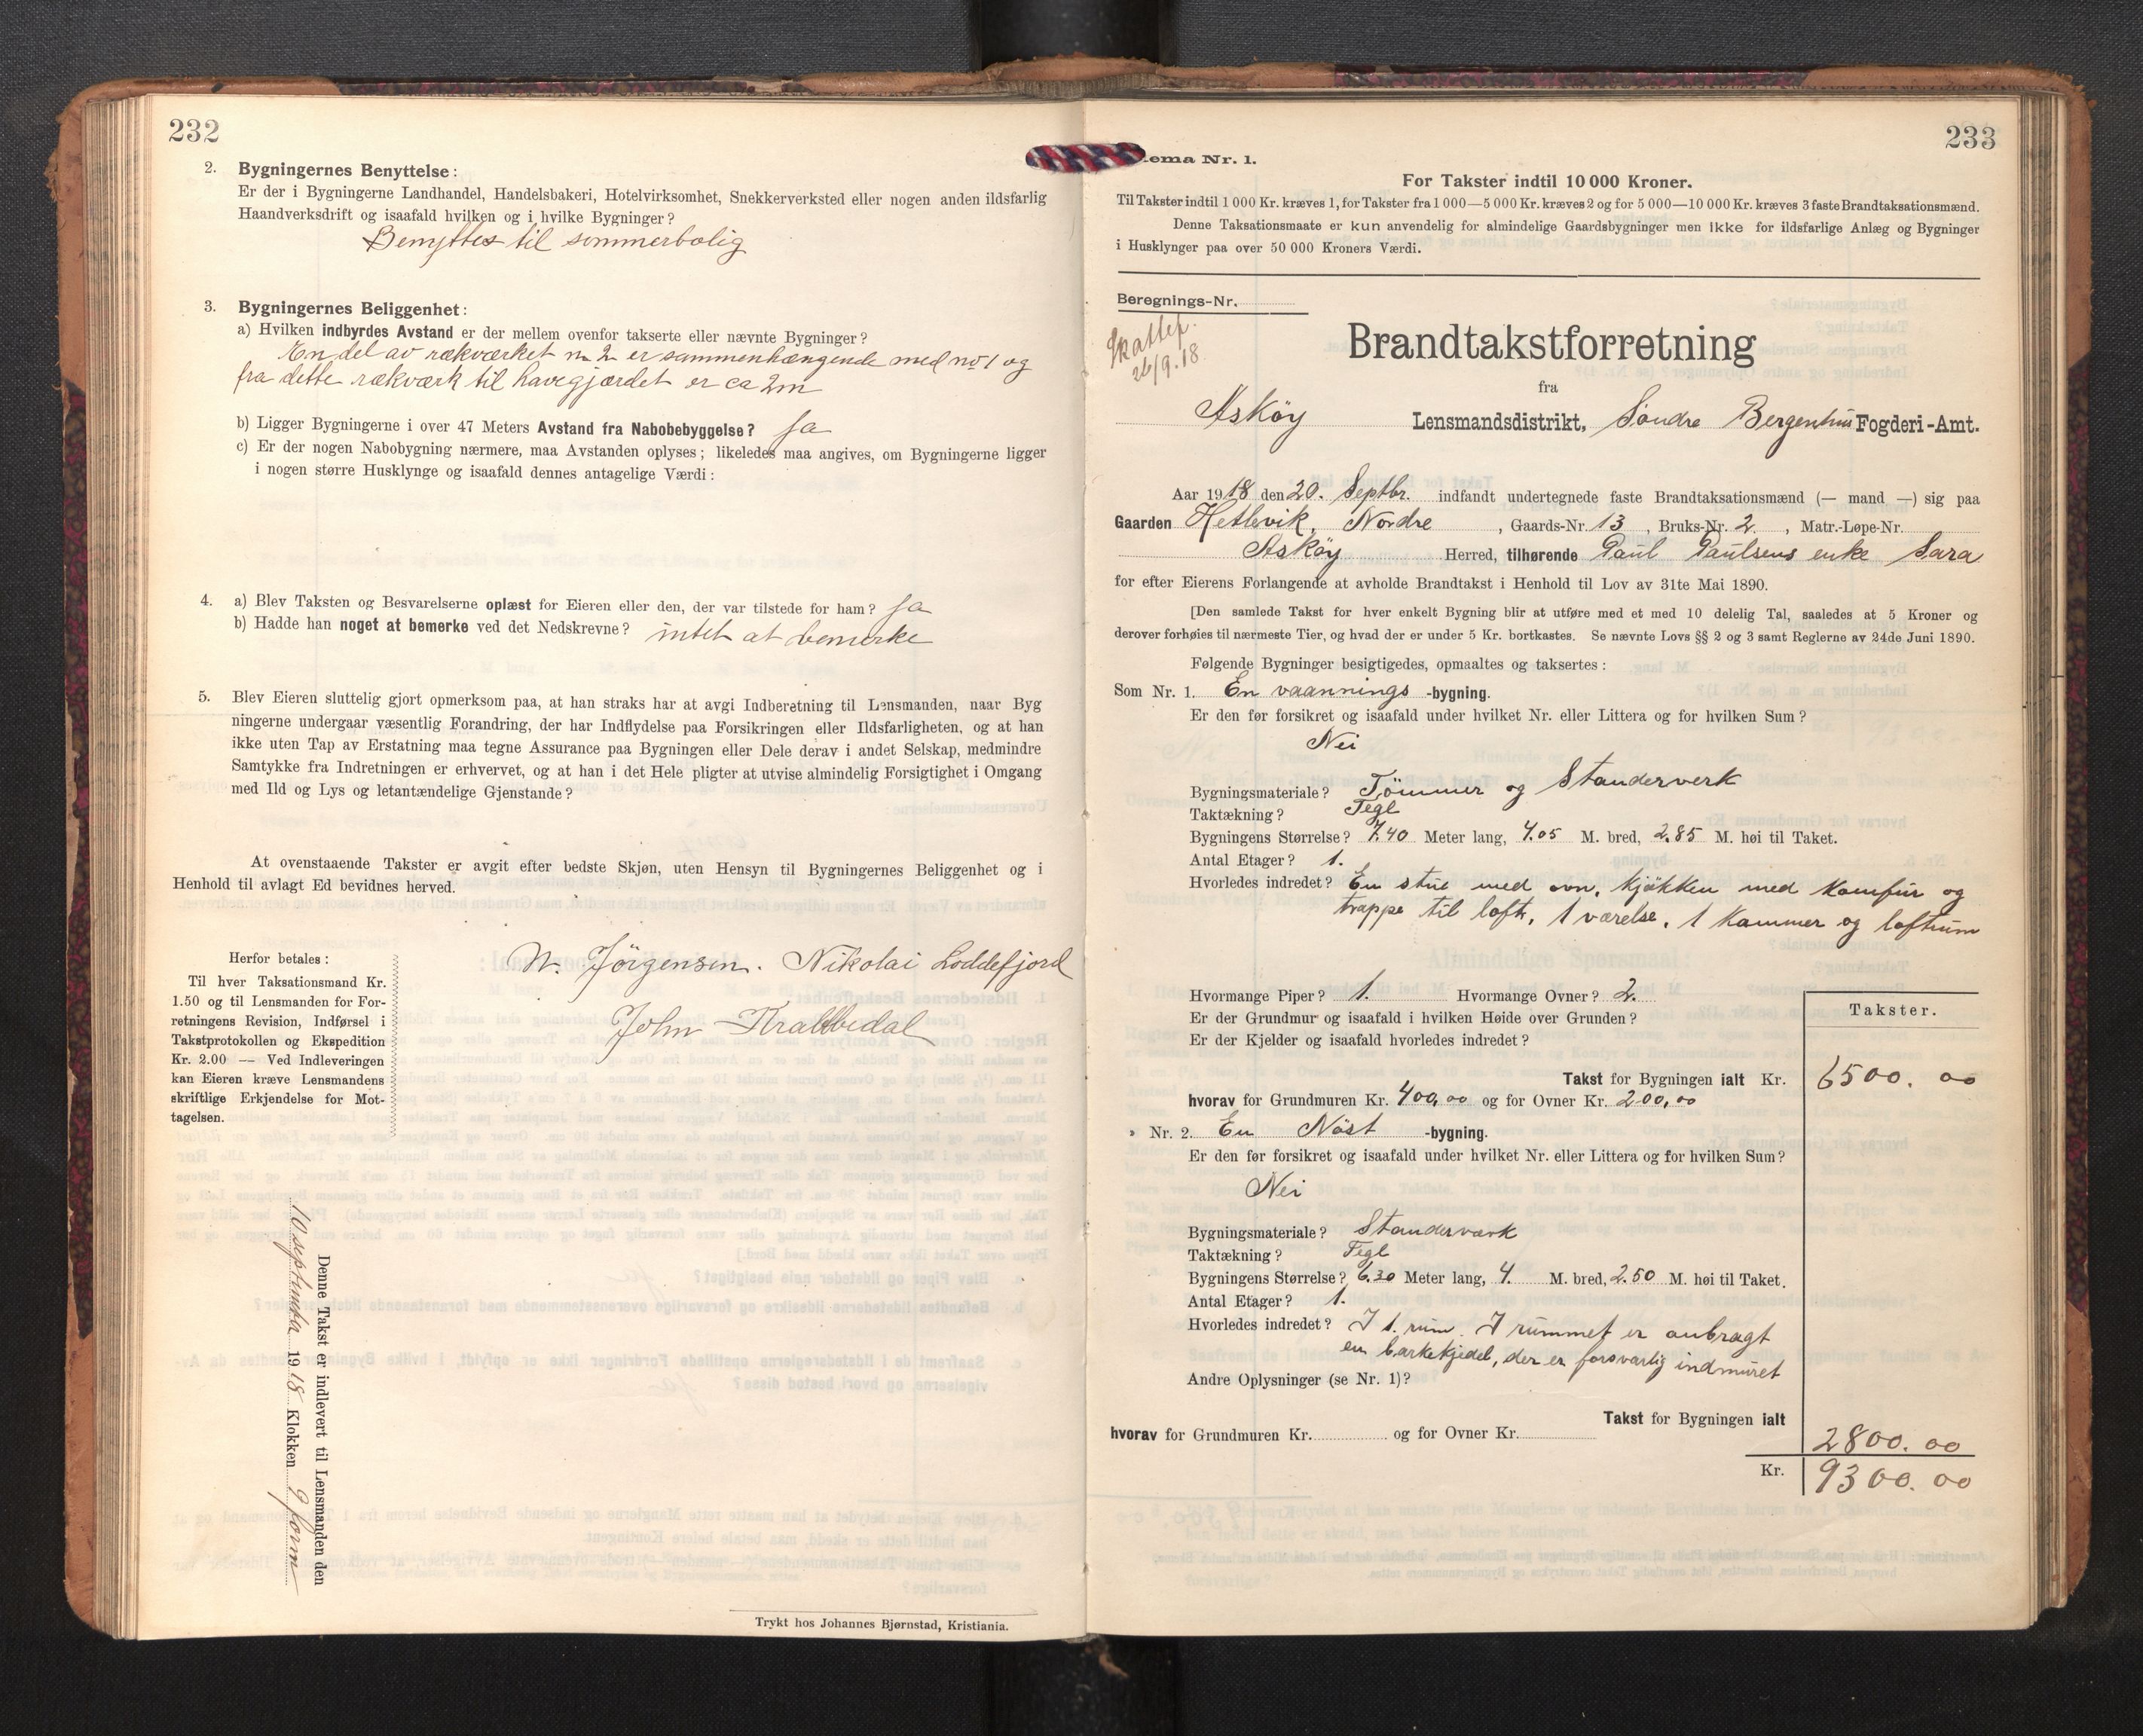 232
2. Bygningernes Benyttelse:
Er der i Bygningerne Landhandel, Handelsbakeri, Hotelvirksomhet, Snekkerverksted eller nogen anden ildsfarlig
Haandverksdrift og isaafald hvilken og i hvilke Bygninger?
Benyttes til sommerbolig
3. Bygningernes Beliggenhet:
a) Hvilken indbyrdes Avstand er der mellem ovenfor takserte eller nævnte Bygninger?
En del av rækværket no 2 er sammenhængende med no 1 og
fra dette rækværk til havegjærdet er ca 2m
b) Ligger Bygningerne i over 47 Meters Avstand fra Nabobebyggelse? Ja
c) Er der nogen Nabobygning nærmere, maa Avstanden oplyses; likeledes maa angives, om Bygningerne ligger
i nogen større Husklynge og isaafald dennes antagelige Værdi:
4. a) Blev Taksten og Besvarelserne oplæst for Eieren eller den, der var tilstede for ham? Ja
b) Hadde han noget at bemerke ved det Nedskrevne? intet at bemerke
5. Blev Eieren sluttelig gjort opmerksom paa, at han straks har at avgi Indberetning til Lensmanden, naar Byg
ningerne undergaar væsentlig Forandring, der har Indflydelse paa Forsikringen eller Ildsfarligheten, og at han
ikke uten Tap av Erstatning maa tegne Assurance paa Bygningen eller Dele derav i andet Selskap, medmindre
Samtykke fra Indretningen er erhvervet, og at han i det Hele pligter at utvise almindelig Forsigtighet i Omgang
med Ild og Lys og letantændelige Gjenstande?
At ovenstaaende Takster er avgit efter bedste Skjøn, uten Hensyn til Bygningernes Beliggenhet og i
Henhold til avlagt Ed bevidnes herved.
N. Jörgensen. Nikolai Loddefjord
John Krabbedal
Herfor betales:
Til hver Taksationsmand Kr.
1.50 og til Lensmanden for For-
retningens Revision, Indførsel i
Takstprotokollen og Ekspedition
Kr. 2.00 — Ved Indleveringen
kan Eieren kræve Lensmandens
skriftlige Erkjendelse for Mot-
tagelsen.
Denne Takst er indlevert til Lensmanden den
10 september 1918 Klokken 9 form
Trykt hos Johannes Bjørnstad, Kristiania.
233
ema Nr. 1.
For Takster indtil 10 000 Kroner.
Til Takster indtil 1 000 Kr. kræves 1, for Takster fra 1 000—5 000 Kr. kræves 2 og for 5 000—10 000 Kr. kræves 3 faste Brandtaksationsmænd.
Denne Taksationsmaate er kun anvendelig for almindelige Gaardsbygninger men ikke for ildsfarlige Anlæg og Bygninger
i Husklynger paa over 50 000 Kroners Værdi.
Beregnings-Nr.
Skattef.
26/9.18
Brandtakstforretning
fra
Asköy Lensmandsdistrikt, Söndre Bergenhus Fogderi-Amt.
Aar 1918 den 20. Septbr. indfandt undertegnede faste Brandtaksationsmænd (— mand —) sig paa
Gaarden Hetlevik, Nordre, Gaards-Nr. 13, Bruks-Nr. 2, Matr.-Løpe-Nr.
Asköy Herred, tilhørende Paul Paulsens enke Sara
for efter Eierens Forlangende at avholde Brandtakst i Henhold til Lov av 31te Mai 1890.
[Den samlede Takst for hver enkelt Bygning blir at utføre med et med 10 delelig Tal, saaledes at 5 Kroner og
derover forhøies til nærmeste Tier, og hvad der er under 5 Kr. bortkastes. Se nævnte Lovs §§ 2 og 3 samt Reglerne av 24de Juni 1890.
Følgende Bygninger besigtigedes, opmaaltes og taksertes:
Som Nr. 1. En vaannings -bygning.
Er den før forsikret og isaafald under hvilket Nr. eller Littera og for hvilken Sum?
Nei
Bygningsmateriale? Tömmer og Standerverk
Taktækning? Tegl
Bygningens Størrelse? 7.40 Meter lang, 4.05 M. bred, 2.85 M. høi til Taket.
Antal Etager? 1.
Hvorledes indredet? En stue med ovn, kjökken med komfur og
trappe til loft, 1 værelse, 1 kammer og loftrum
Hvormange Piper? 1. Hvormange Ovner? 2.
Er der Grundmur og isaafald i hvilken Høide over Grunden?
Er der Kjelder og isaafald hvorledes indredet?
Takster.
Takst for Bygningen ialt Kr. 6500. 00
hvorav for Grundmuren Kr. 400,00 og for Ovner Kr. 200,00
» Nr. 2. En Nöst -bygning.
Er den før forsikret og isaafald under hvilket Nr. eller Littera og for hvilken Sum?
Nei
Bygningsmateriale? Standerværk
Taktækning? Tegl
Bygningens Størrelse? 6.30 Meter lang, 4. M. bred, 2.50 M. høi til Taket.
Antal Etager? 1.
Hvorledes indredet? I 1. rum. I rummet er anbragt
en barkekjedel, der er forsvarlig indmuret
Andre Oplysninger (se Nr. 1)?
Takst for Bygningen ialt
hvorav for Grundmuren Kr. og for Ovner Kr. 2800. 00
Kr. 9300. 00